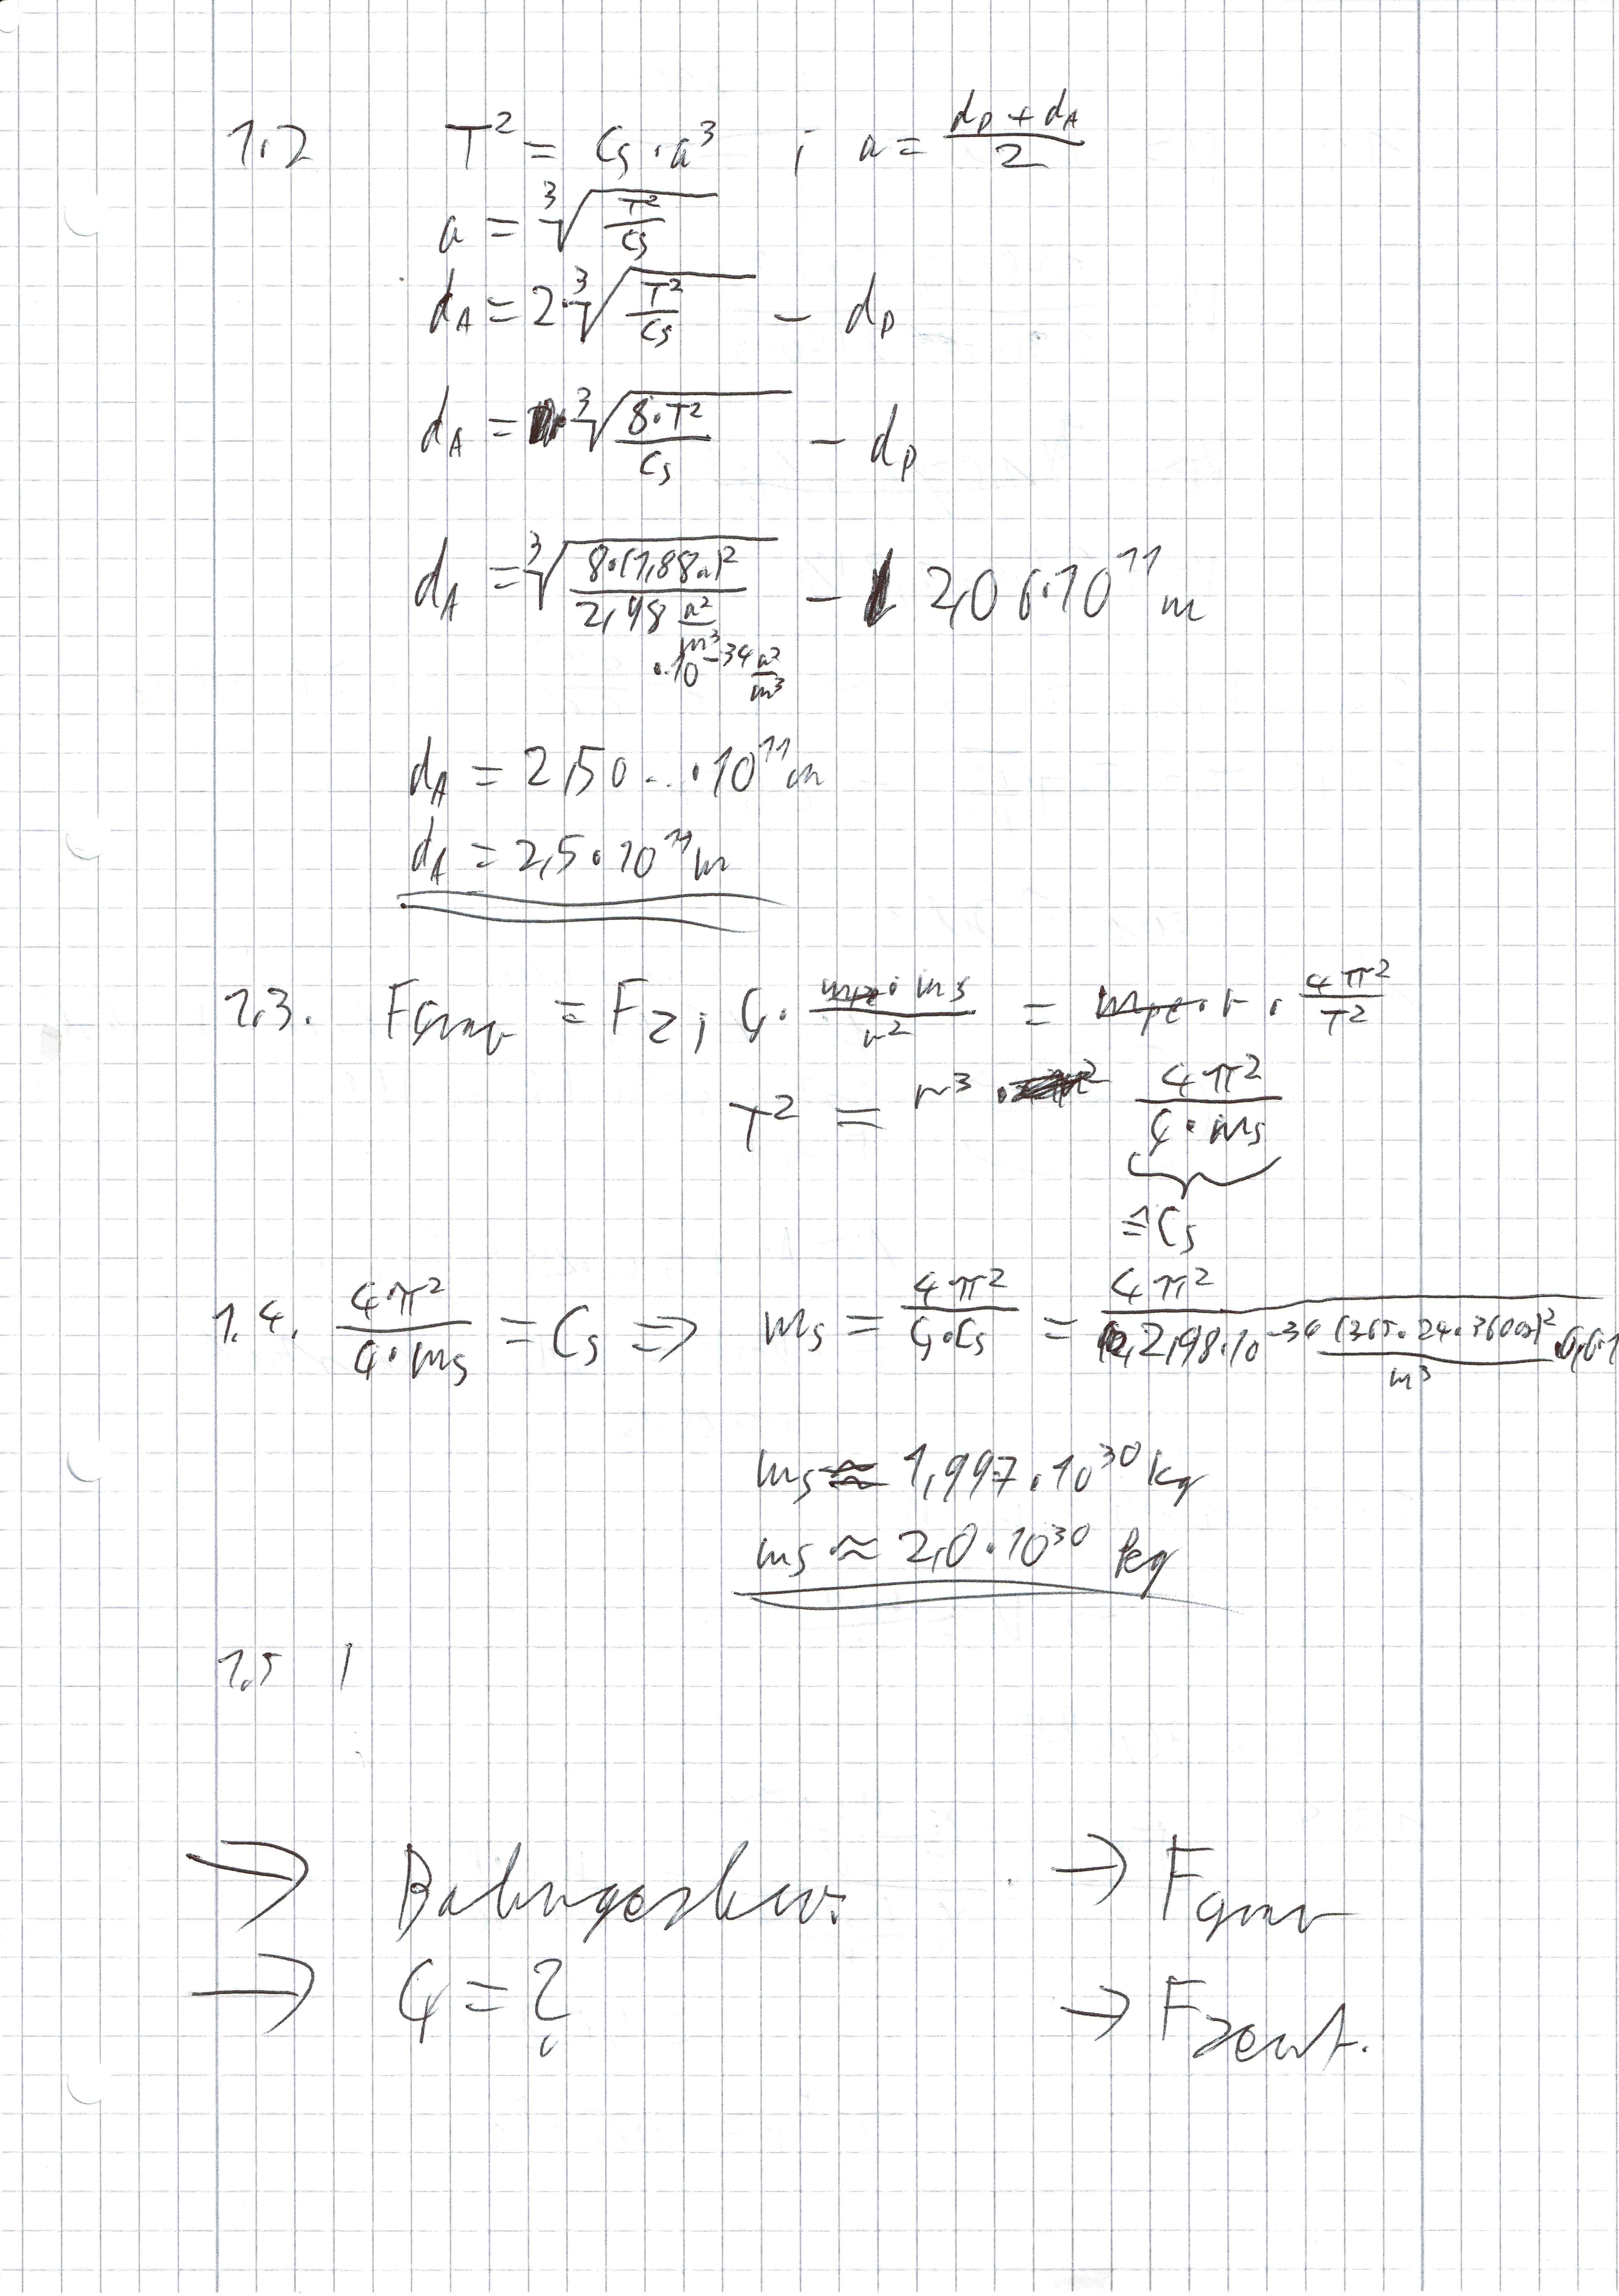 1.2 T² = Cs · a³ ; a = (dP + dA)/2
a = ³√(T²/Cs)
dA = 2·³√(T²/Cs) − dP
dA = ³√(8·T²/Cs) − dP
dA = ³√(8·(1,88a)²/2,98 a²/m³) − 2,06·10¹¹ m
·10⁻³⁴ a²/m³
dA = 2,50...·10¹¹m
dA = 2,5·10¹¹m
1.3. FGrav = FZ ; G · mPl·mS/r² = mPl·r · 4π²/T²
T² = r³ · 4π²/(G·mS)
≙ Cs
1.4. 4π²/(G·mS) = Cs ⇒ mS = 4π²/(G·Cs) = 4π²/(2,98·10⁻³⁴ (365·24·3600s)²/m³ ·6,6·1
mS ≈ 1,997·10³⁰ kg
mS ≈ 2,0·10³⁰ kg
1.5 /
→ Bahngeschw. → FGrav
→ G = ? → FZent.